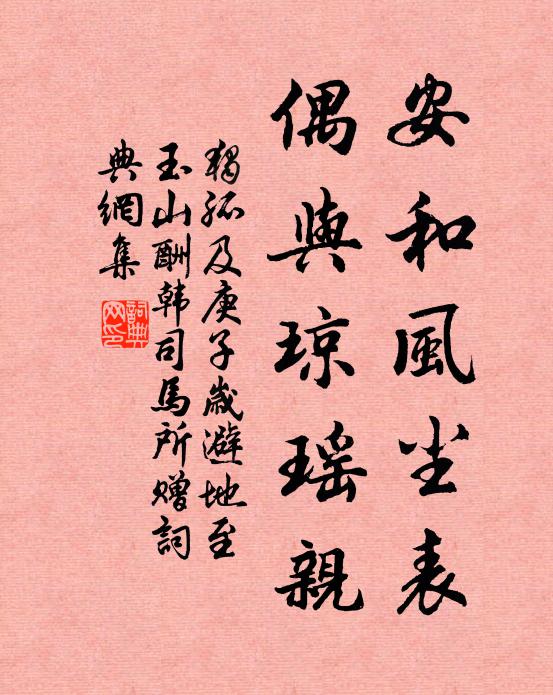 安和風尘表
偶與琼瑶親
独孤及庚子歲避地至
玉山酬韩司馬所赠詞
典網集
詞典网印